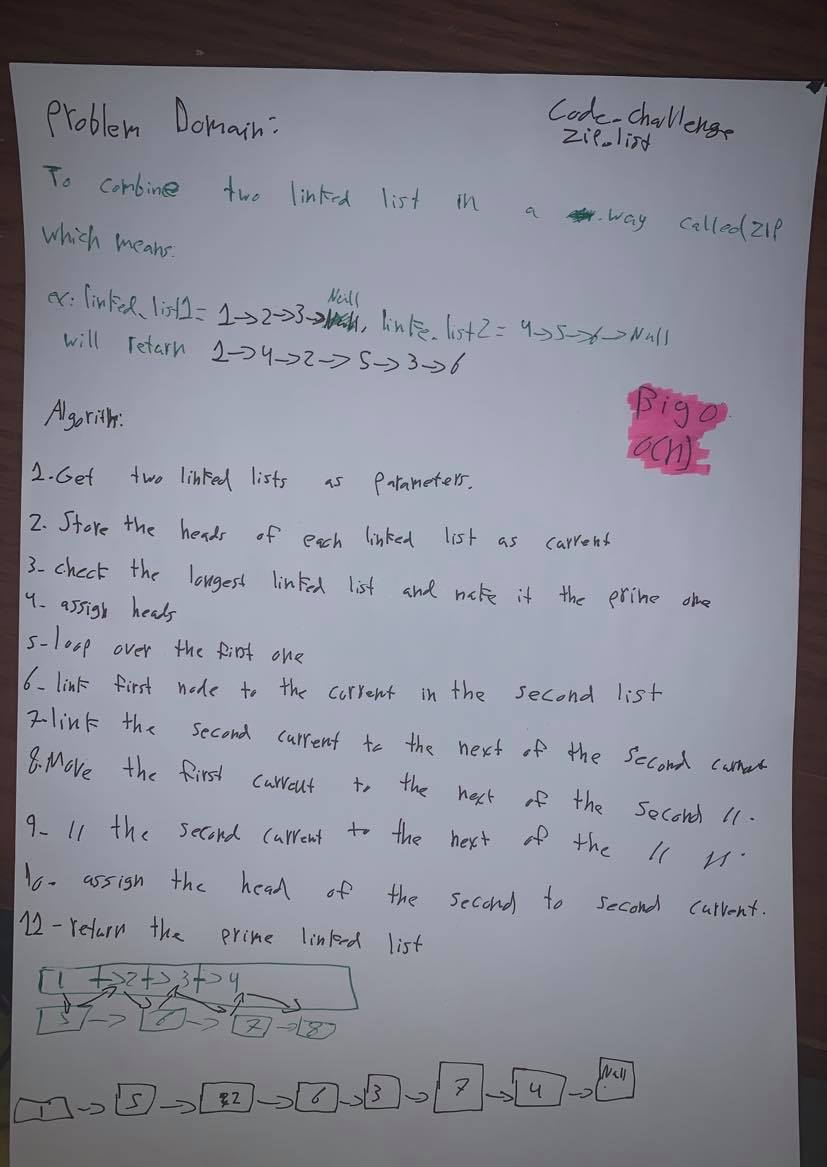 Problem Domain:
Code-challenge
Zip-list
To combine two linked list in a way called ZIP
which means:
ex: linked_list1 = 1->2->3->Null, linke_list2 = 4->5->6->Null
will return 1->4->2->5->3->6
Big O
O(n)
Algorith:
1-Get two linked lists as parameters.
2- Store the heads of each linked list as current
3- check the longest linked list and make it the prime one
4- assign heads
5-loop over the first one
6- link first node to the current in the second list
7-link the second current to the next of the second current
8-Move the first current to the next of the second //.
9- // the second current to the next of the // //.
10- assign the head of the second to second current.
11-return the prime linked list
1 -> 2 -> 3 -> 4
5 -> 6 -> 7 -> 8
1 -> 5 -> 2 -> 6 -> 3 -> 7 -> 4 -> Null